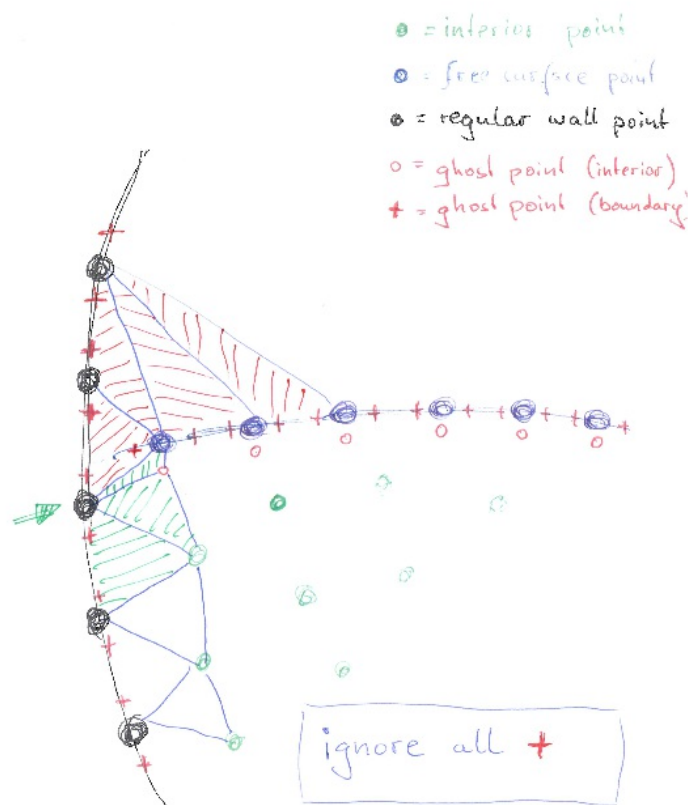 = interior point
= free surface point
= regular wall point
= ghost point (interior)
+ = ghost point (boundary)
ignore all +